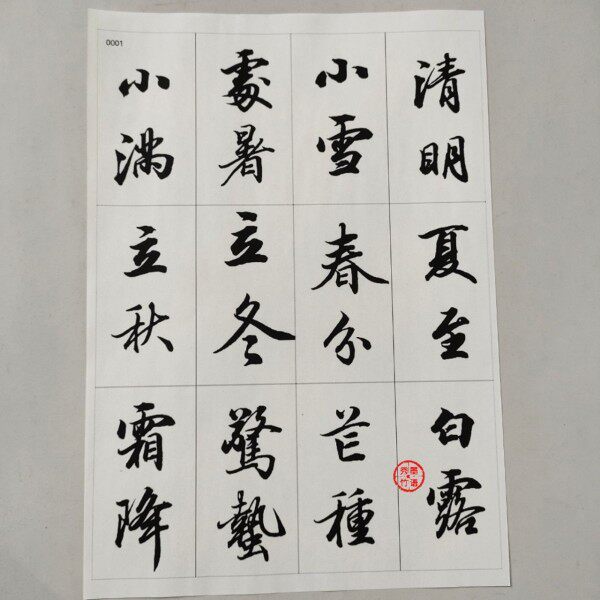 0001
清明
小雪
處暑
小满
夏至
春分
立冬
立秋
白露
芒種
驚蟄
霜降